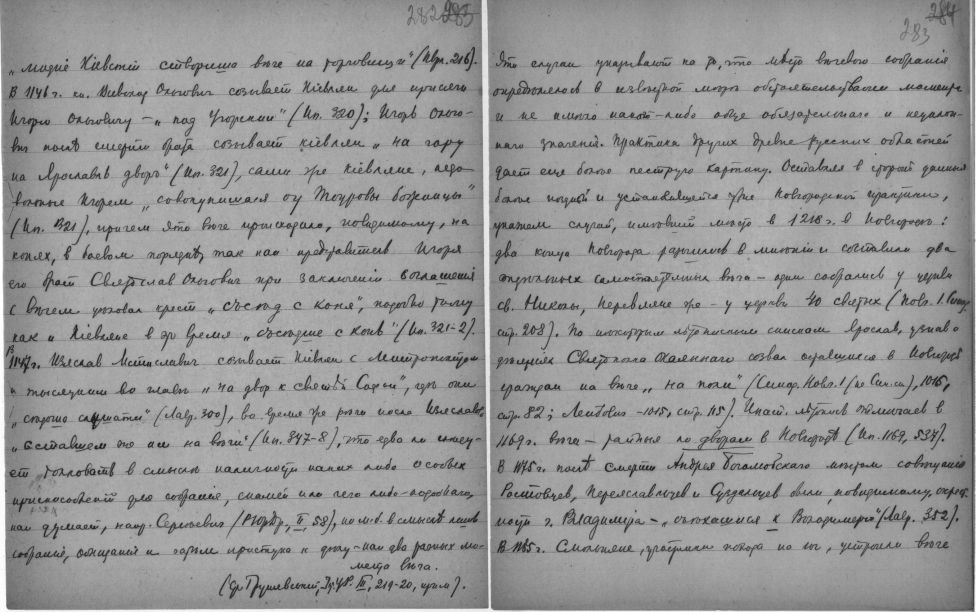 282 283
„людие Кіевстии створиша вѣче на торговищи" (Лвр. 216).
В 1146 г. кн. Всеволод Ольгович созывает Кіевлян для присяги
Игорю Ольговичу – „под Угорский" (Ип. 320); Игорь Ольго-
вич послѣ смерти брата созывает кіевлян „на гору
на Ярославль дворъ" (Ип. 321), сами же Кіевляне, недо-
вольные Игорем „совокупишася оу Тоуровы божницы"
(Ип. 321), причем это вѣче происходило, повидимому, на
конях, в боевом порядкѣ, так как представитель Игоря
его брат Святослав Ольгович при заключеніи соглашенія
с вѣчем цѣловал крест „съсѣд с коня", подобно тому
как и Кіевляне в то время „съсѣдше с конь" (Ип. 321-2).
В 1147 г. Изяслав Мстиславич созывает Кіевлян с Митрополитом
и тысяцкими во главѣ „на двор к святѣй Софьи", гдѣ они
(Лавр. 300), во время же рѣчи посла Изяслава
(Ип. 347-8), что едва ли слѣду-
ет толковать в смыслѣ наличности каких либо особых
приспособленій для собранія, скамей или чего либо подобнаго,
как думает, напр. Сергѣевич (РЮрДр, II 53), но м.б. в смыслѣ
собранія, ожиданія и
мѣста вѣча.
(Ср. Грушевський, Іс. УР. III, 219-20, прим.).
283 284
Эти случаи указывают на то, что мѣсто вѣчевого собранія
опредѣлялось в извѣстной мѣрѣ обстоятельствами момента
и не имѣло какой-либо обще обязательнаго и неуклон-
наго значенія. Практика других древне-русских областей
дает еще болѣе пеструю картину. Оставляя в сторонѣ данныя
болѣе поздней и установившейся уже Новгородской практики,
укажем случай, имѣвшій мѣсто в 1218 г. в Новгородѣ:
два конца Новгорода разошлись в мнѣніи и составили два
отдѣльных самостоятельных вѣча – одни собрались у церкви
св. Николы, Неревляне же – у церкви 40 святых (Новг. 1. Синод.
стр. 208). По нѣкоторым лѣтописным спискам Ярослав, узнав о
Святополка Окаяннаго созвал оставшихся в Новгородѣ
граждан на вѣче „на поли" (Синод. Новг. 1 (не Син. сп.), 1016,
стр. 82; – 1015, стр. 115). Ипат. лѣтопись отмѣчает в
1169 г. вѣча – тайные по дворам в Новгородѣ (Ип. 1169, 537).
В 1175 г. послѣ смерти Андрея Боголюбскаго мѣстом совѣщанія
Ростовцев, Переяславцев и Суздальцев были, повидимому, окрест-
ности г. Владимира – „съѣхашися к Володимерю" (Лавр. 352).
В 1185 г. Смольняне, участники похода на юг, устроили вѣче